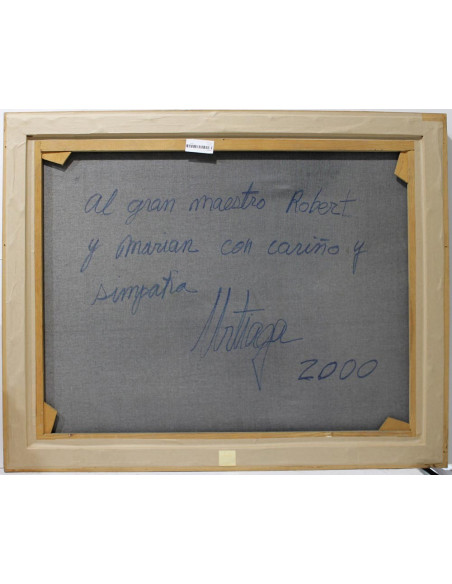 al gran maestro Robert
y Marian con cariño y
simpatia
2000